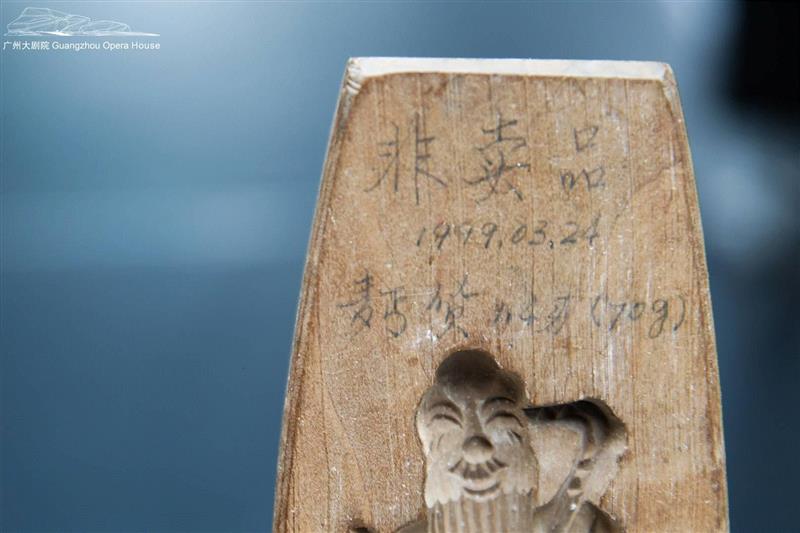 广州大剧院 Guangzhou Opera House
非卖品
1999.03.24
(70g)